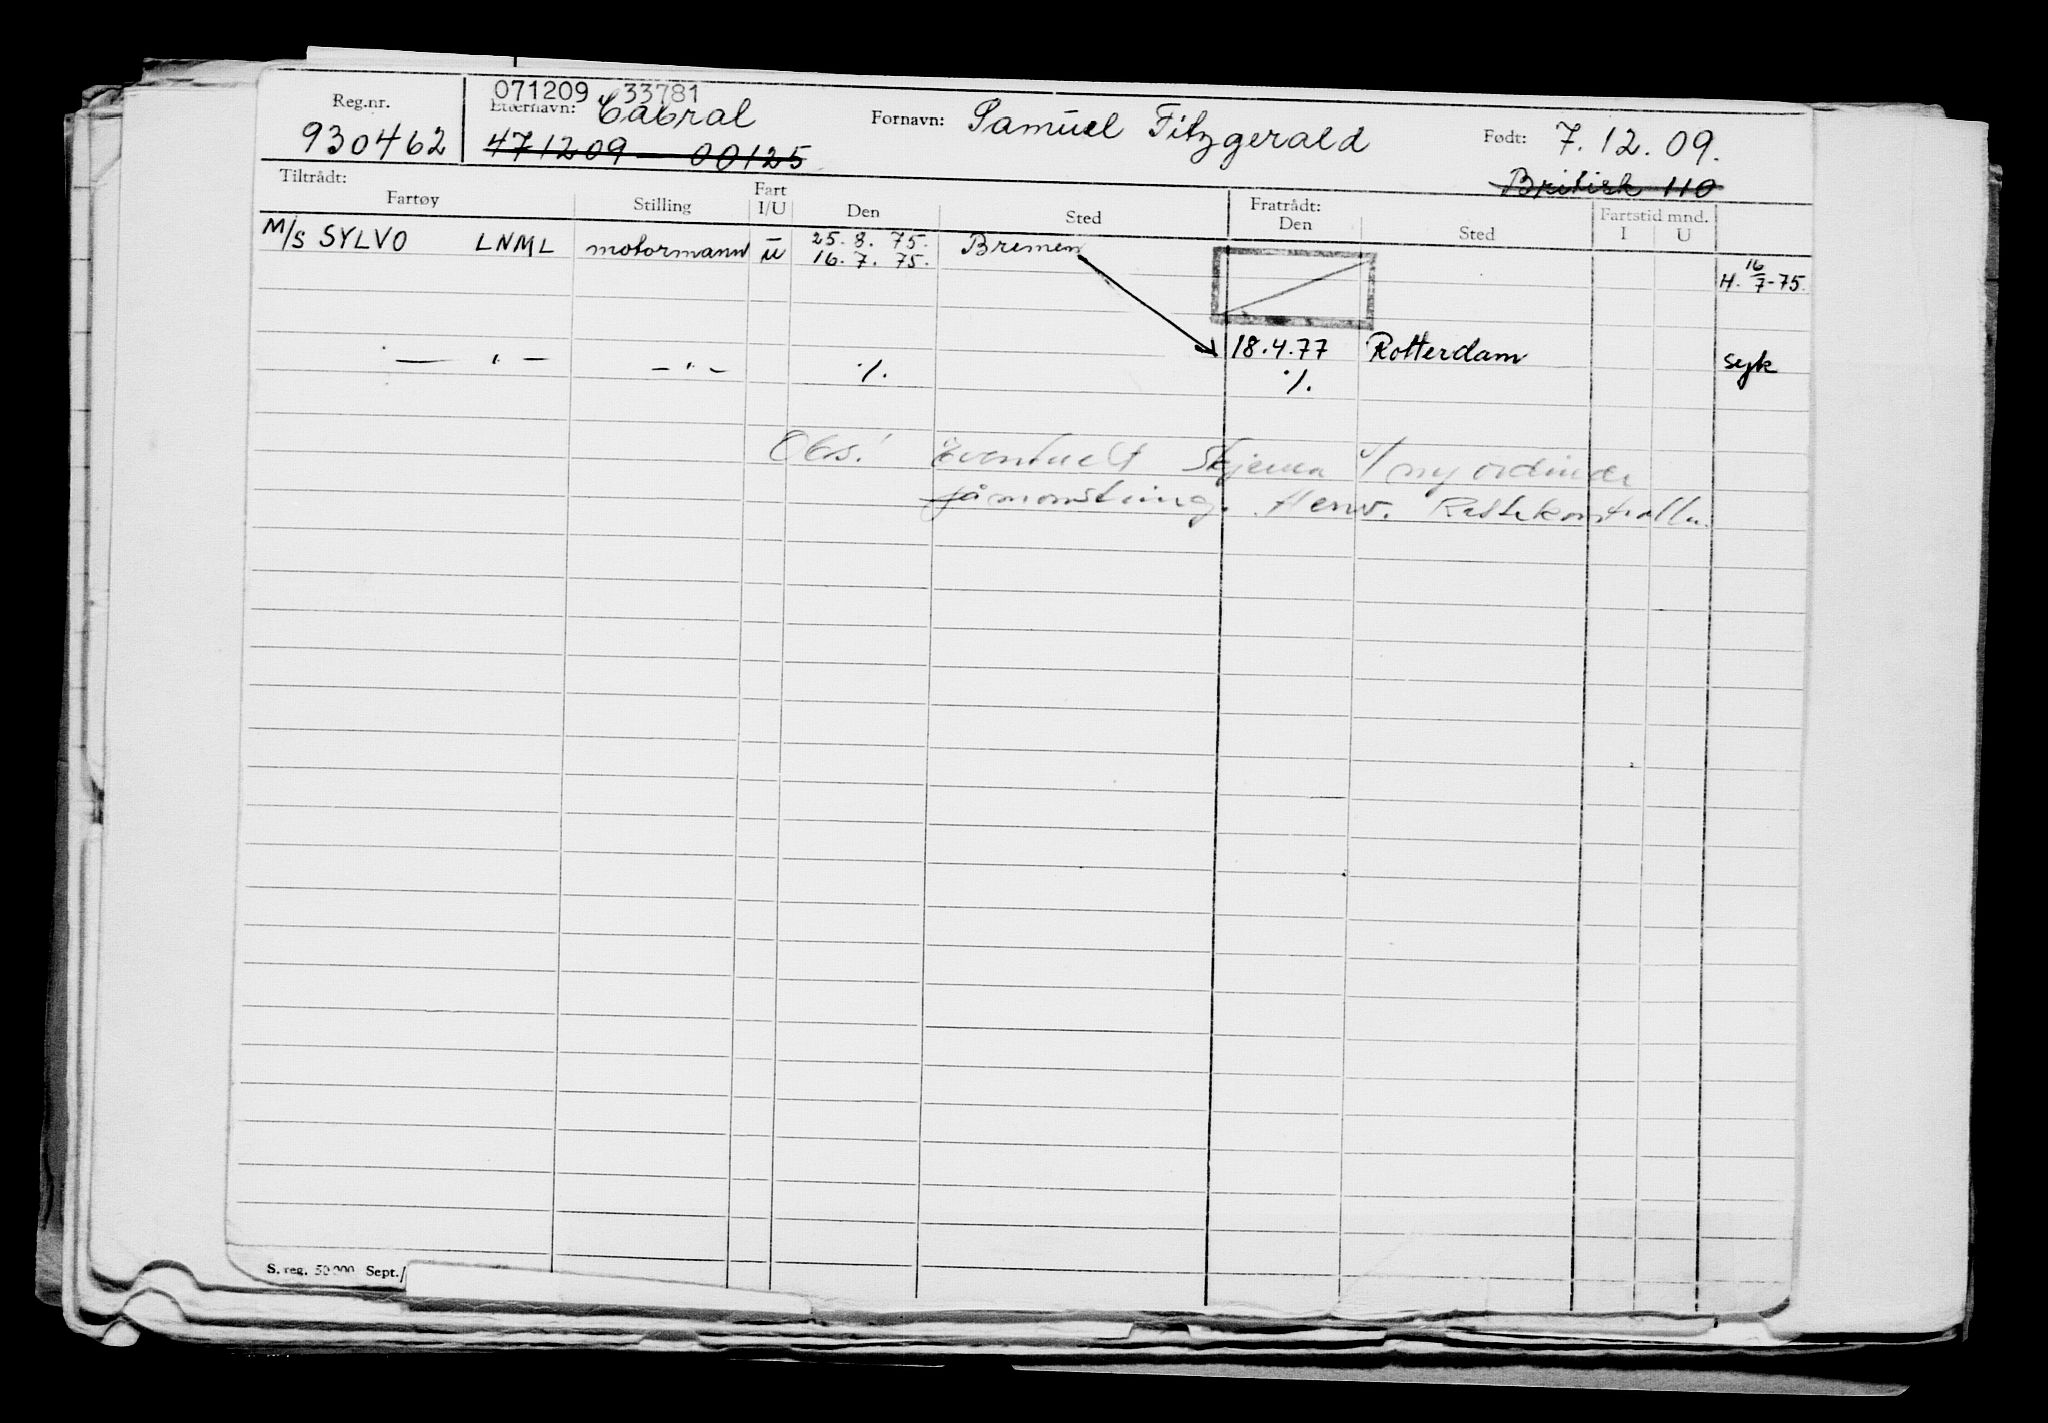 071209 33781
Reg.nr. Etternavn: Cabral Fornavn: Samuel Fitzgerald Født: 7.12.09.
930462 471209 — 00125
British 110
Tiltrådt: Fratrådt:
Fartøy Stilling Fart I/U Den Sted Den Sted Fartstid mnd. I U
M/S SYLVO LNML motormann u 25.8.75. Bremen
16.7.75.
H. 16/7-75.
18.4.77 Rotterdam
— " — — " — ./. ./. syk
Obs! Eventuelt skjema v/ ny ordinær
påmønstring. Henv. Rettekontrollen.
S. reg. 50 000 Sept./